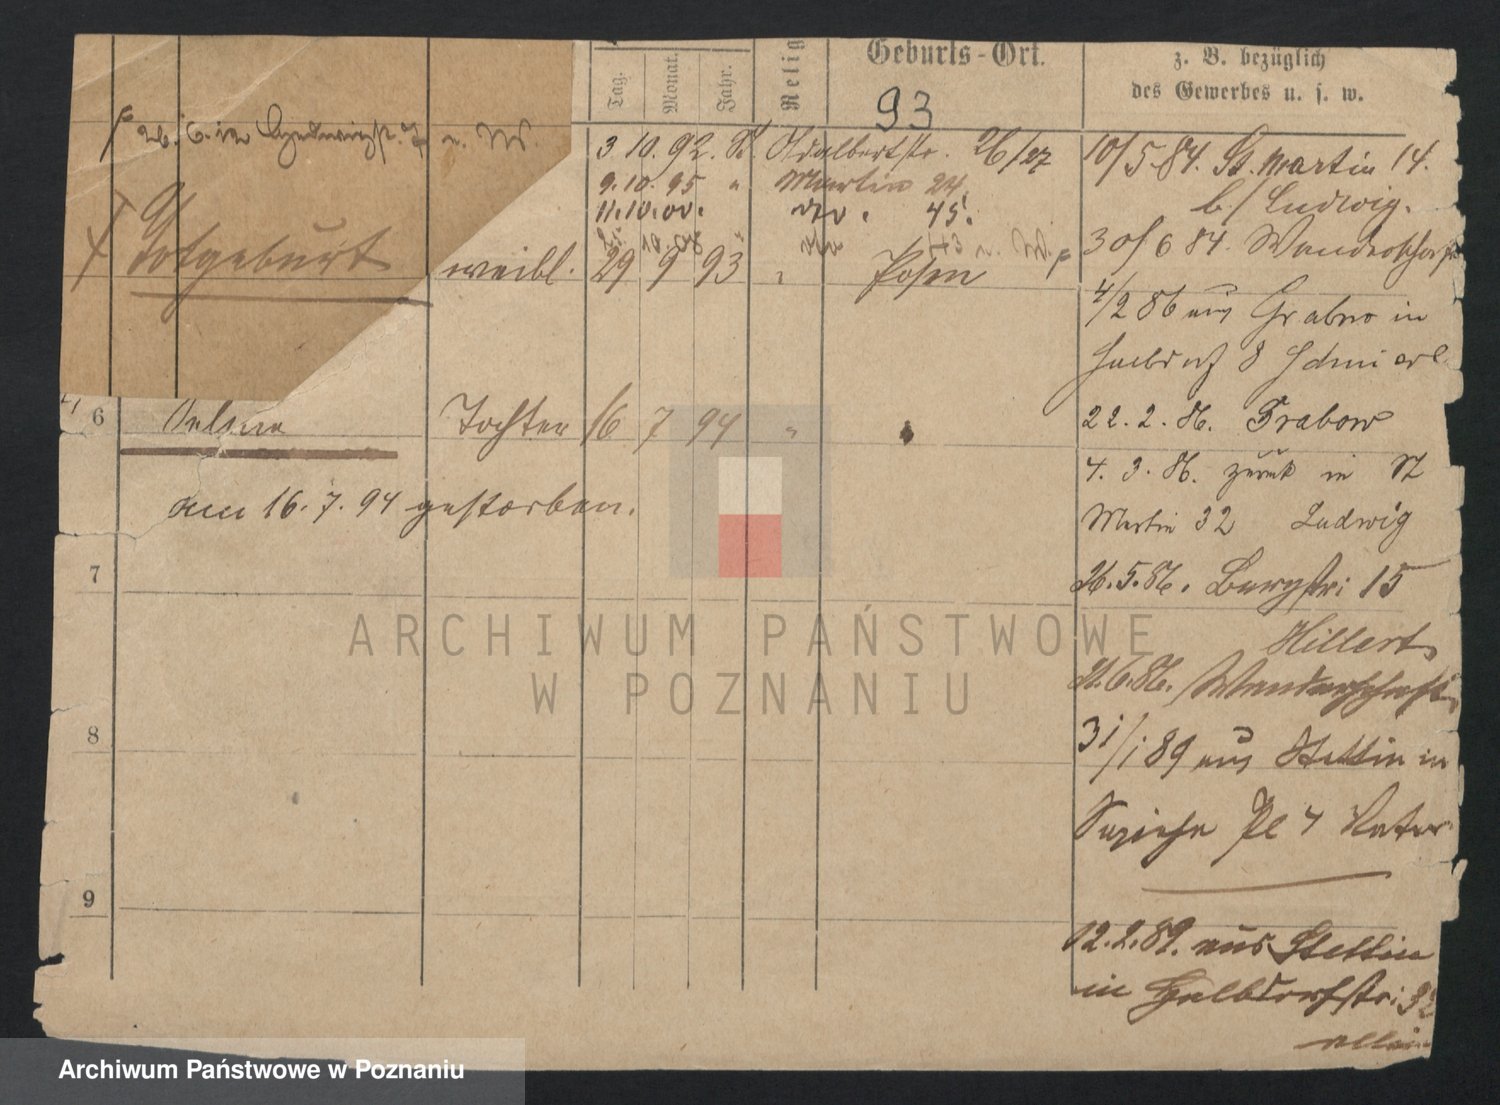 Tag.
Monat.
Jahr.
Relig
Geburts-Ort.
93
z. B. bezüglich
des Gewerbes u. s. w.
26. 6. in
3. 10. 92. Adalbertstr. 26/27
9. 10. 95 " Martin 24.
11. 10. 00. do. 45.
Totgeburt
weibl. 29 9 93 " Posen
10/5 84. St. Martin 14.
b/ Ludwig.
30/6 84. Wanderschaft
4/2 86 aus Grabow in
Halbdorf 8
22. 2. 86. Grabow
4. 3. 86. zurück in St
Martin 32 Ludwig
26. 5. 86. Bergstr: 15
Hillert
21. 6. 86. Wanderschaft
31/1 89 aus Stettin in
Pl 4 Vater
12. 2. 89. aus Stettin
in Halbdorfstr: 32
6
Tochter 16 7 94 "
am 16. 7. 94 gestorben.
7
8
9
ARCHIWUM PAŃSTWOWE
W POZNANIU
Archiwum Państwowe w Poznaniu